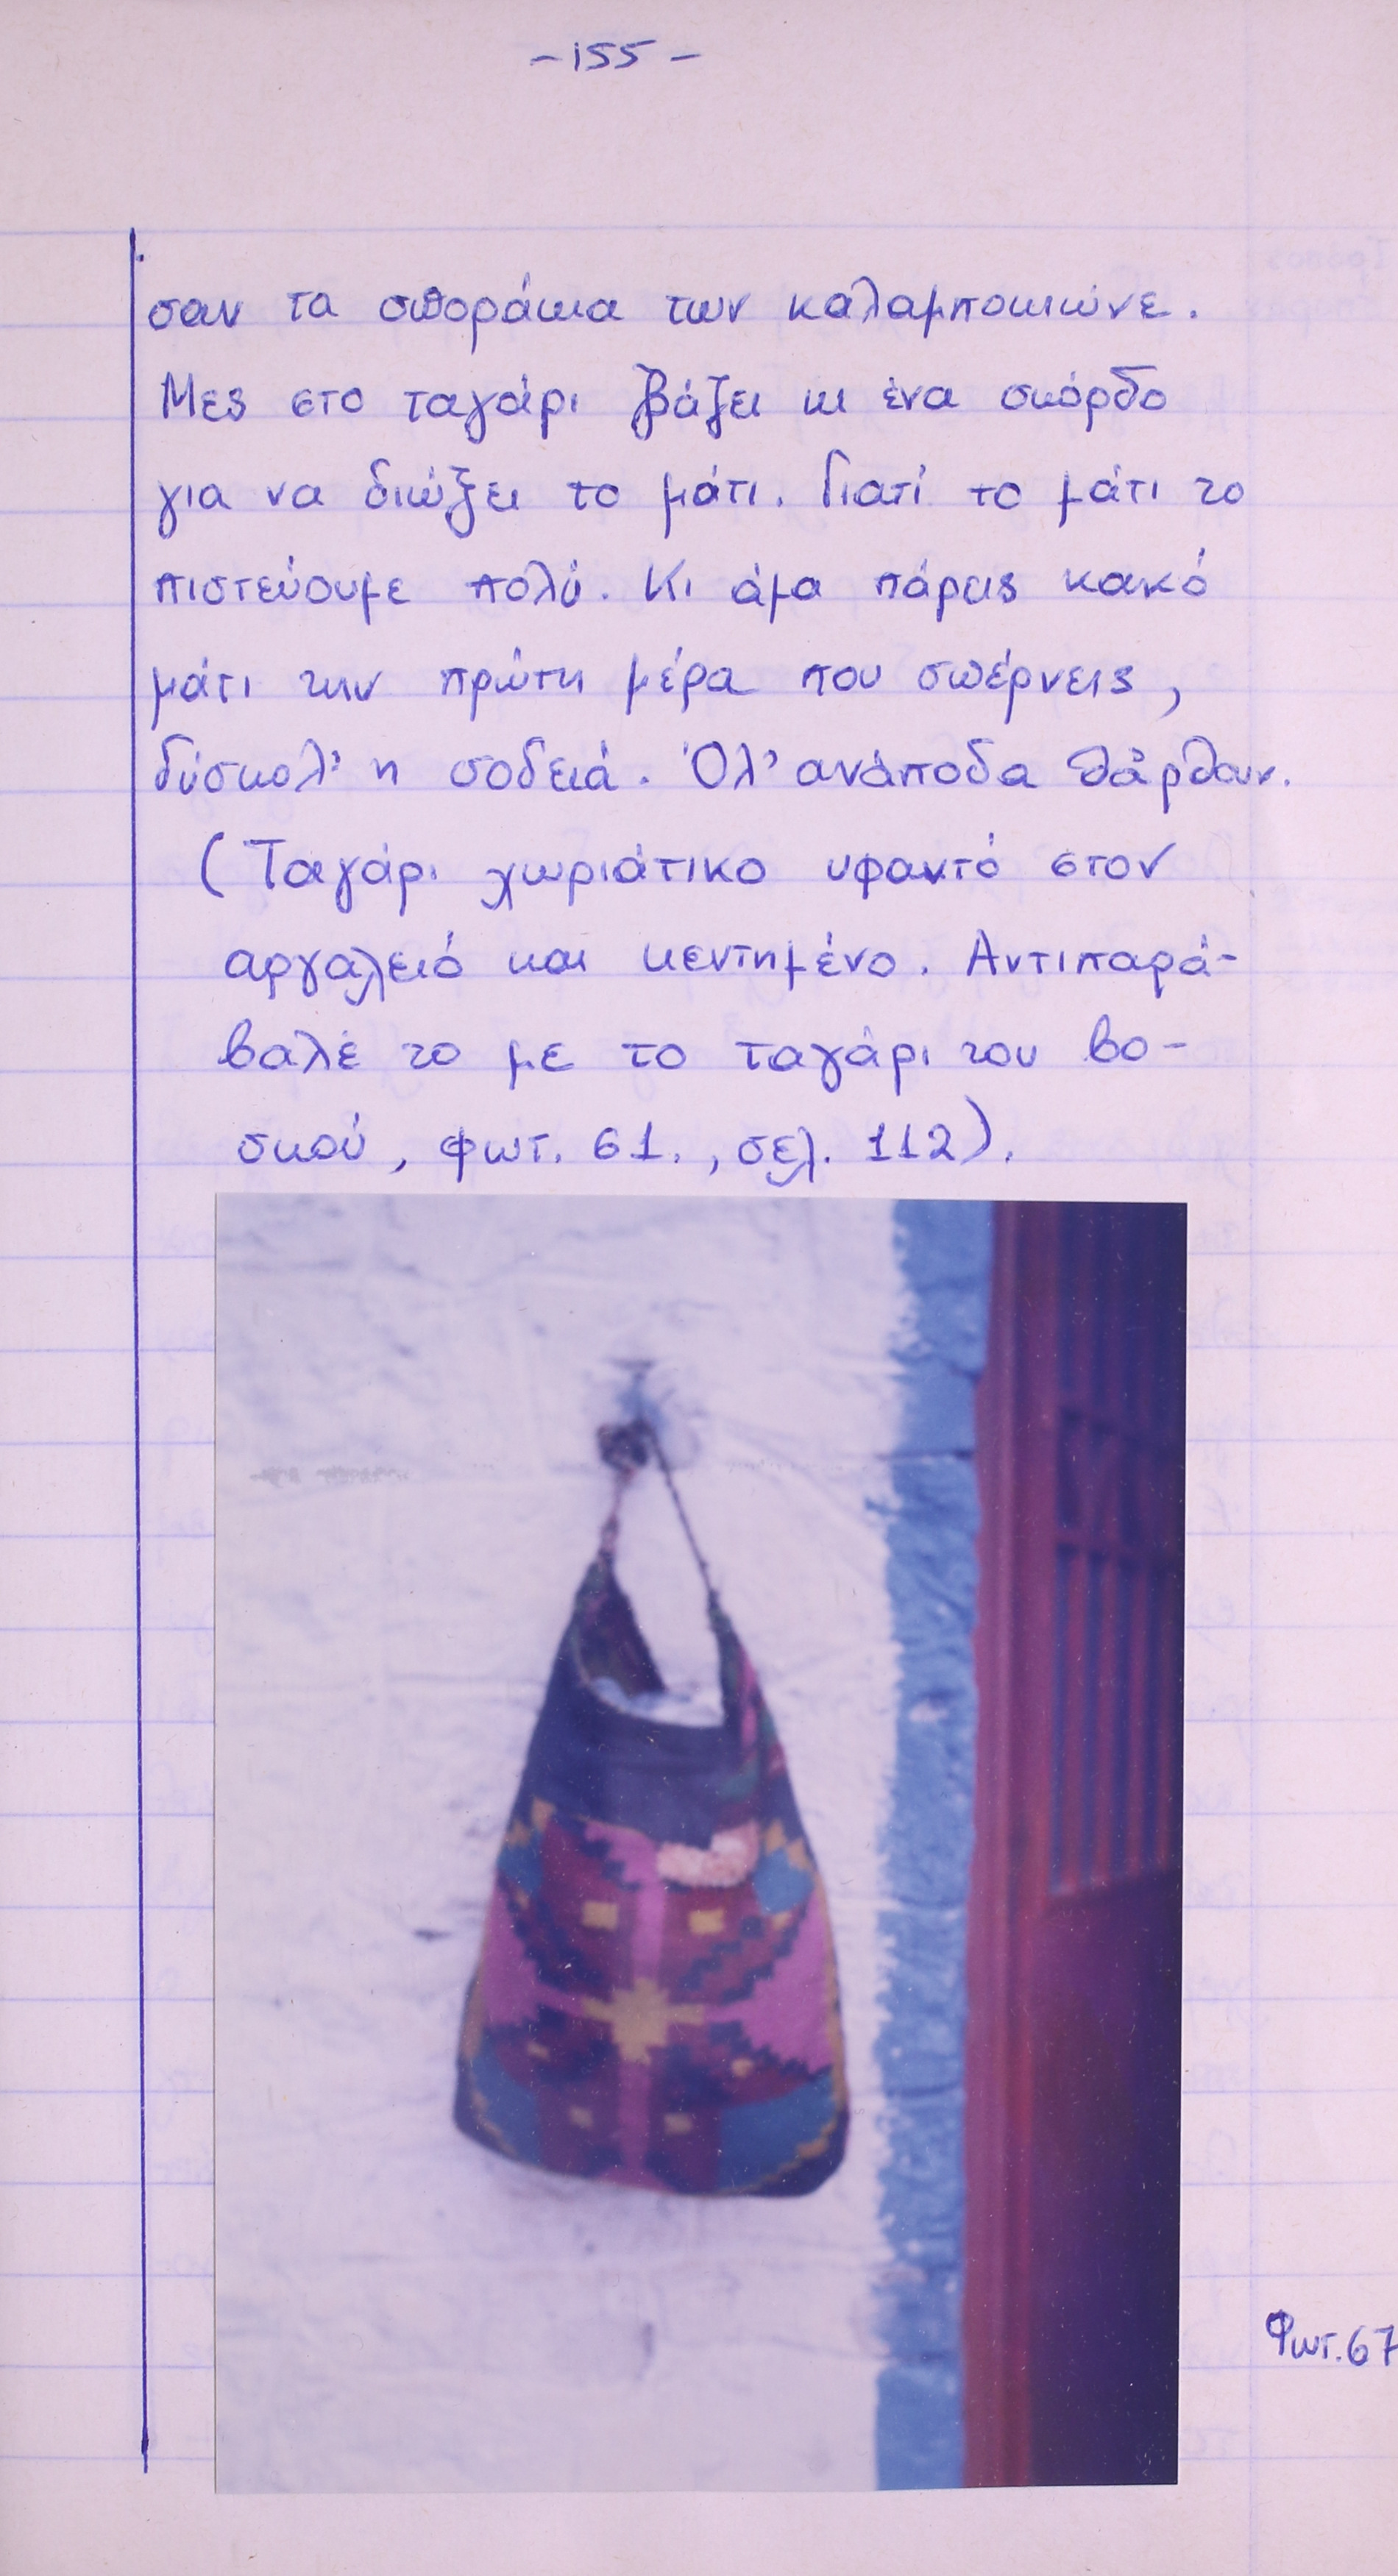 -155-
σαν τα σποράκια των καλαμποκιώνε.
Μες στο ταγάρι βάζει κι ένα σκόρδο
για να διώξει το μάτι. Γιατί το μάτι το
πιστεύουμε πολύ. Κι άμα πάρεις κακό
μάτι την πρώτη μέρα που σπέρνεις,
δύσκολ' η σοδειά. Όλ' ανάποδα θἄρθουν.
(Ταγάρι χωριάτικο υφαντό στον
αργαλειό και κεντημένο. Αντιπαρά-
βαλέ το με το ταγάρι του βο-
σκού, φωτ. 61., σελ. 112).
Φωτ. 67